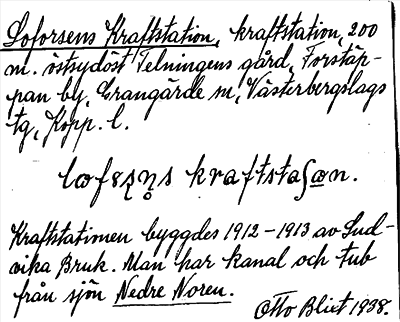 Loforsens Kraftstation, kraftstation, 200
m. östsydöst Telningens gård, Forstäp-
pan by, Grangärde sn, Västerbergslags
tg, Kopp. l.
kraftstaʃωn.
Kraftstationen byggdes 1912-1913 av Lud-
vika Bruk. Man har kanal och tub
från sjön Nedre Noren.
Otto Blixt 1938.